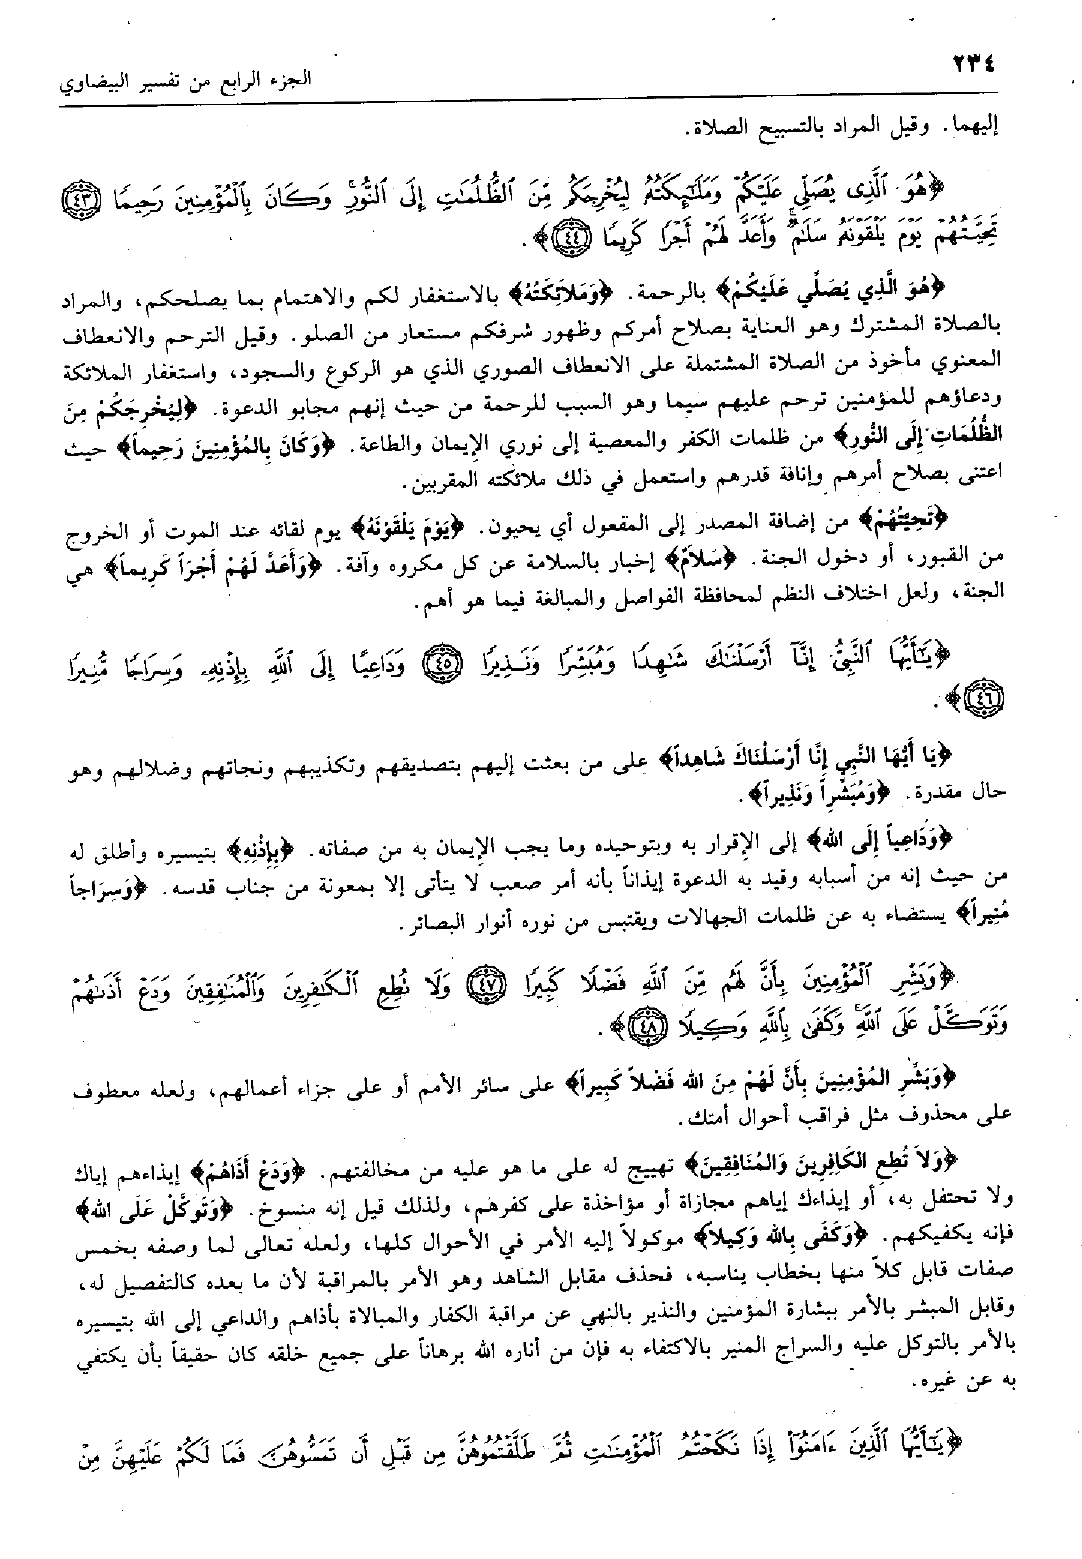 ٢٣٤
الجزء الرابع من تفسير البيضاوي
إليهما. وقيل المراد بالتسبيح الصلاة.
﴿هُوَ ٱلَّذِى يُصَلِّى عَلَيْكُمْ وَمَلَٰٓئِكَتُهُۥ لِيُخْرِجَكُم مِّنَ ٱلظُّلُمَٰتِ إِلَى ٱلنُّورِ ۚ وَكَانَ بِٱلْمُؤْمِنِينَ رَحِيمًا ﴿٤٣﴾
تَحِيَّتُهُمْ يَوْمَ يَلْقَوْنَهُۥ سَلَٰمٌ ۚ وَأَعَدَّ لَهُمْ أَجْرًا كَرِيمًا ﴿٤٤﴾﴾.
﴿هُوَ الَّذِي يُصَلِّي عَلَيْكُمْ﴾ بالرحمة. ﴿وَمَلَائِكَتُهُ﴾ بالاستغفار لكم والاهتمام بما يصلحكم، والمراد
بالصلاة المشترك وهو العناية بصلاح أمركم وظهور شرفكم مستعار من الصلو. وقيل الترحم والانعطاف
المعنوي مأخوذ من الصلاة المشتملة على الانعطاف الصوري الذي هو الركوع والسجود، واستغفار الملائكة
ودعاؤهم للمؤمنين ترحم عليهم سيما وهو السبب للرحمة من حيث إنهم مجابو الدعوة. ﴿لِيُخْرِجَكُمْ مِنَ
الظُّلُمَاتِ إِلَى النُّورِ﴾ من ظلمات الكفر والمعصية إلى نوري الإيمان والطاعة. ﴿وَكَانَ بِالمُؤْمِنِينَ رَحِيماً﴾ حيث
اعتنى بصلاح أمرهم وإنافة قدرهم واستعمل في ذلك ملائكته المقربين.
﴿تَحِيَّتُهُمْ﴾ من إضافة المصدر إلى المفعول أي يحيون. ﴿يَوْمَ يَلْقَوْنَهُ﴾ يوم لقائه عند الموت أو الخروج
من القبور، أو دخول الجنة. ﴿سَلَامٌ﴾ إخبار بالسلامة عن كل مكروه وآفة. ﴿وَأَعَدَّ لَهُمْ أَجْرَاً كَرِيماً﴾ هي
الجنة، ولعل اختلاف النظم لمحافظة الفواصل والمبالغة فيما هو أهم.
﴿يَٰٓأَيُّهَا ٱلنَّبِىُّ إِنَّآ أَرْسَلْنَٰكَ شَٰهِدًا وَمُبَشِّرًا وَنَذِيرًا ﴿٤٥﴾ وَدَاعِيًا إِلَى ٱللَّهِ بِإِذْنِهِۦ وَسِرَاجًا مُّنِيرًا
﴿٤٦﴾﴾.
﴿يَا أَيُّهَا النَّبِي إِنَّا أَرْسَلْنَاكَ شَاهِداً﴾ على من بعثت إليهم بتصديقهم وتكذيبهم ونجاتهم وضلالهم وهو
حال مقدرة. ﴿وَمُبَشِّراً وَنَذِيراً﴾.
﴿وَدَاعِياً إِلَى الله﴾ إلى الإقرار به وبتوحيده وما يجب الإيمان به من صفاته. ﴿بِإِذْنِهِ﴾ بتيسيره وأطلق له
من حيث إنه من أسبابه وقيد به الدعوة إيذاناً بأنه أمر صعب لا يتأتى إلا بمعونة من جناب قدسه. ﴿وَسِرَاجاً
مُنِيراً﴾ يستضاء به عن ظلمات الجهالات ويقتبس من نوره أنوار البصائر.
﴿وَبَشِّرِ ٱلْمُؤْمِنِينَ بِأَنَّ لَهُم مِّنَ ٱللَّهِ فَضْلًا كَبِيرًا ﴿٤٧﴾ وَلَا تُطِعِ ٱلْكَٰفِرِينَ وَٱلْمُنَٰفِقِينَ وَدَعْ أَذَىٰهُمْ
وَتَوَكَّلْ عَلَى ٱللَّهِ ۚ وَكَفَىٰ بِٱللَّهِ وَكِيلًا ﴿٤٨﴾﴾.
﴿وَبَشِّرِ المُؤْمِنِينَ بِأَنَّ لَهُمْ مِنَ الله فَضْلاً كَبِيراً﴾ على سائر الأمم أو على جزاء أعمالهم، ولعله معطوف
على محذوف مثل فراقب أحوال أمتك.
﴿وَلاَ تُطِعِ الكَافِرِينَ وَالمُنَافِقِينَ﴾ تهييج له على ما هو عليه من مخالفتهم. ﴿وَدَعْ أَذَاهُمْ﴾ إيذاءهم إياك
ولا تحتفل به، أو إيذاءك إياهم مجازاة أو مؤاخذة على كفرهم، ولذلك قيل إنه منسوخ. ﴿وَتَوَكَّلْ عَلَى الله﴾
فإنه يكفيكهم. ﴿وَكَفَى بِالله وَكِيلاً﴾ موكولاً إليه الأمر في الأحوال كلها، ولعله تعالى لما وصفه بخمس
صفات قابل كلاً منها بخطاب يناسبه، فحذف مقابل الشاهد وهو الأمر بالمراقبة لأن ما بعده كالتفصيل له،
وقابل المبشر بالأمر ببشارة المؤمنين والنذير بالنهي عن مراقبة الكفار والمبالاة بأذاهم والداعي إلى الله بتيسيره
بالأمر بالتوكل عليه والسراج المنير بالاكتفاء به فإن من أناره الله برهاناً على جميع خلقه كان حقيقاً بأن يكتفي
به عن غيره.
﴿يَٰٓأَيُّهَا ٱلَّذِينَ ءَامَنُوٓا۟ إِذَا نَكَحْتُمُ ٱلْمُؤْمِنَٰتِ ثُمَّ طَلَّقْتُمُوهُنَّ مِن قَبْلِ أَن تَمَسُّوهُنَّ فَمَا لَكُمْ عَلَيْهِنَّ مِنْ